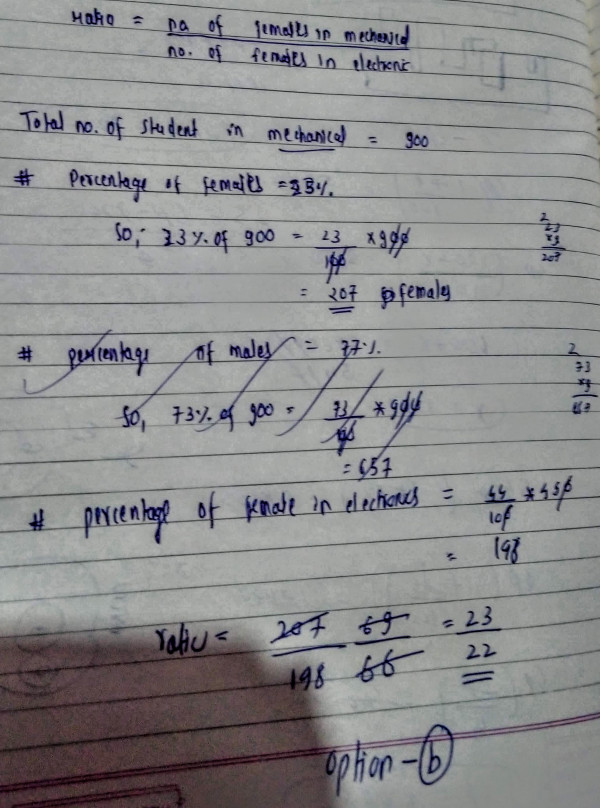 Ratio = no of females in mechanical
no. of females in electronic
Total no. of student in mechanical = 900
# Percentage of females = 23%.
So, 23% of 900 = 23/100 * 900
2
23
*9
207
= 207 females
# percentage of males = 77%.
2
73
*9
657
So, 73% of 900 = 73/100 * 900
= 657
# percentage of female in electronics = 44/100 * 450
= 198
ratio = 207/198 69/66 = 23/22
option - b